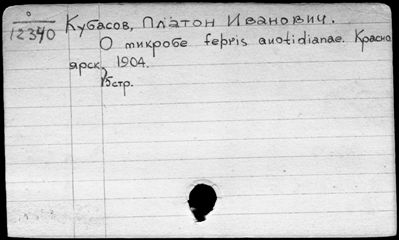 о
12340
Кубасов, Платон Иванович.
О микробе febris quotidianae. Красно
ярск, 1904.
15 стр.